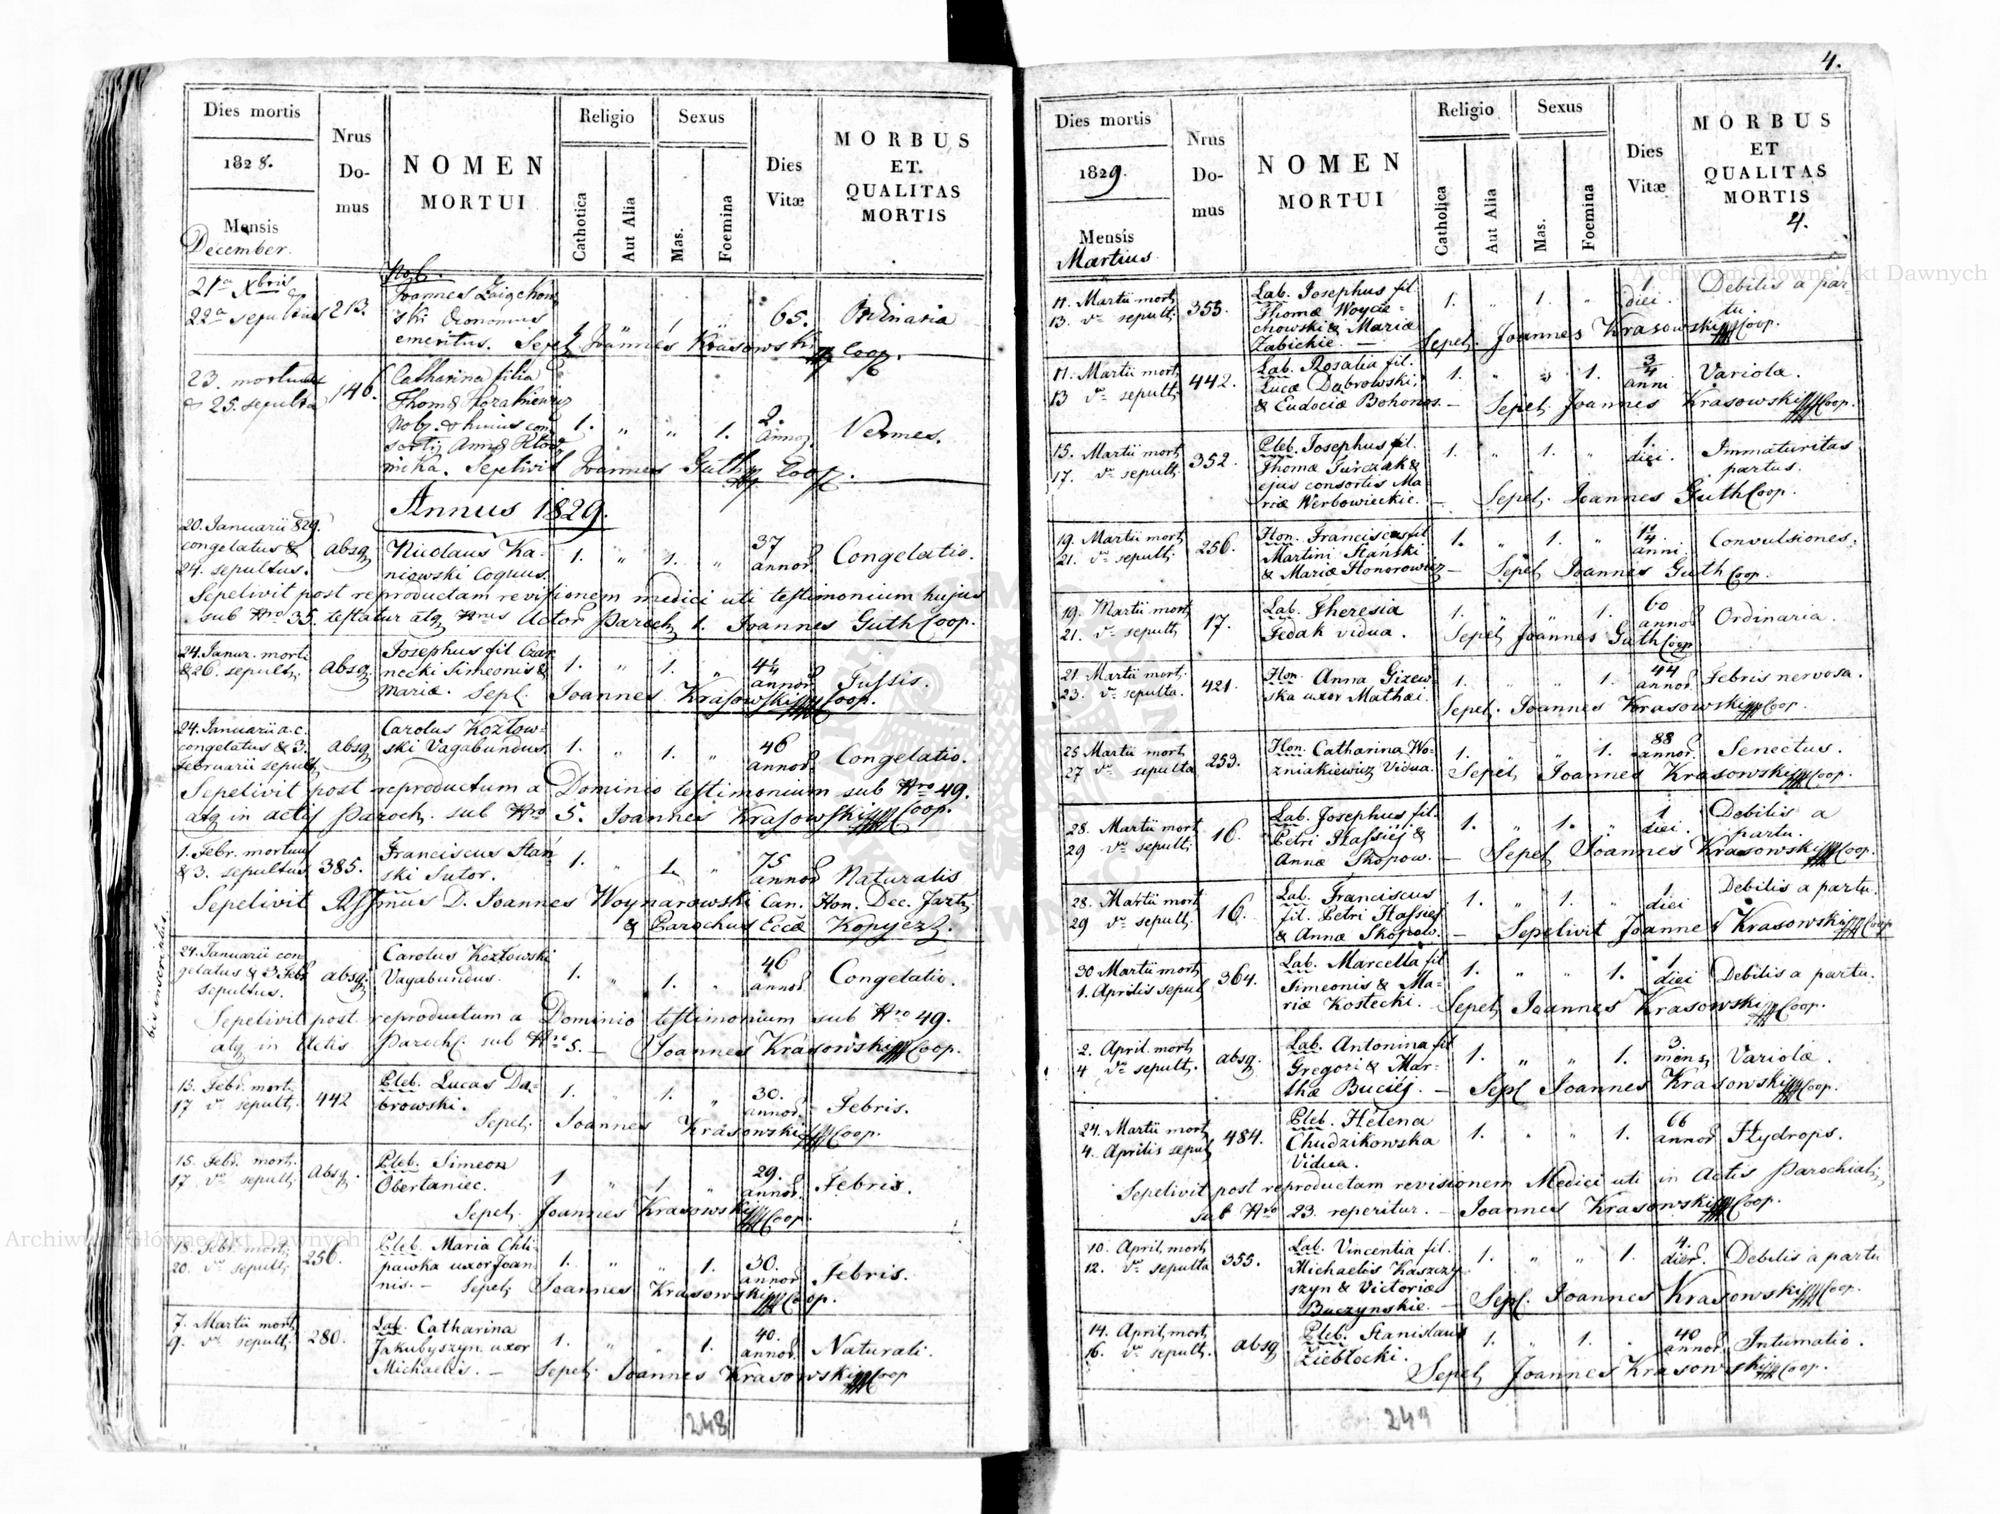 Dies mortis
1828.
Mensis
December.
Nrus
Do-
mus
NOMEN
MORTUI
Religio
Catholica
Aut Alia
Sexus
Mas.
Foemina
Dies
Vitæ
MORBUS
ET.
QUALITAS
MORTIS
21a Xbris
22a
213.
Nob.
Joannes
Oeconomus
emeritus. Sepel. Joannes Krasowski Coop.
65.
Ordinaria
23.
& 25. sepulta
146.
Catharina filia
2.
1. " " 1.
Vermes.
Sepelivit Joannes Guth Coop.
Annus 1829.
20. Januarii 829.
congelatus &
24. sepultus.
absq
Nicolaus Ka-
niowski coquus.
1. " 1. "
37
annor
Congelatio.
Sepelivit post reproductam revisionem medici uti testimonium hujus
sub Nro 35. testatur atq Nrus Actor Paroch 1. Joannes Guth Coop.
24. Januar. mort.
& 26. sepult.
absq
Josephus fil Czar
necki Simeonis &
Mariæ. Sepl. Joannes Krasowski Coop.
1. " 1. "
annor
Tussis.
24. Januarii a.c.
congelatus & 3.
Februarii sepult
absq
Carolus Kozłow-
ski Vagabundus.
1. " 1. "
46
annor
Congelatio.
Sepelivit post reproductum a Dominio testimonium sub Nro 49.
atq in actis Paroch. sub Nro 5. Joannes Krasowski Coop.
1. Febr. mortuus
& 3. sepultus
385.
Franciscus Stań
ski Sutor.
1. " 1. "
75
annor
Naturalis
Sepelivit D. Joannes Woynarowski Can. Hon. Dec.
& Parochus Kopyczy.
bis inscriptus.
24. Januarii con
gelatus & 3 Febr
sepultus.
absq
Carolus Kozłowski
Vagabundus.
1. " 1. "
46
annor
Congelatio.
Sepelivit post reproductum a Dominio testimonium sub Nro 49.
atq in Actis Paroch. sub Nro 5. — Joannes Krasowski Coop.
15. Febr. mort.
17 va sepult.
442
Pleb. Lucas Da-
browski.
1. " 1. "
30.
annor
Febris.
Sepel. Joannes Krasowski Coop.
15. Febr. mort.
17. va sepult.
Absq.
Pleb. Simeon
Obertaniec.
1 " 1 "
29.
annor.
Febris.
Sepel. Joannes Krasowski Coop.
18. Febr. mort.
20. va sepult.
256.
Pleb. Maria Chli-
pawka uxor Joan-
nis. — Sepel. Joannes Krasowski Coop.
1. " " 1.
30.
annor
Febris.
7. Martii mort.
9. va sepult.
280.
Lab. Catharina
Jakubyszyn uxor
Michaelis. — Sepel. Joannes Krasowski Coop
1. " " 1.
40.
annor.
Naturali.
248
4.
Dies mortis
1829.
Mensis
Martius
Nrus
Do-
mus
NOMEN
MORTUI
Religio
Catholica
Aut Alia
Sexus
Mas.
Foemina
Dies
Vitæ
MORBUS
ET
QUALITAS
MORTIS
4.
11. Martii mort.
13. va sepult.
353.
Lab. Josephus fil.
Thomæ Woycie-
chowski & Mariæ
Zabickie. — Sepel. Joannes Krasowski Coop.
1. " 1. "
1
diei.
Debilis a par-
tu.
11. Martii mort.
13 va sepult.
442.
Lab. Rosalia fil.
Lucæ Dąbrowski,
& Eudociæ Bohonos. — Sepel. Joannes Krasowski Coop.
1. " " 1.
3/4
anni
Variola.
15. Martii mort.
17. va sepult.
352.
Pleb. Josephus fil.
Thomæ Gurczak &
ejus consortis Ma-
riæ Werbowieckie. — Sepel. Joannes Guth Coop.
1. " 1. "
1.
diei.
Immaturitas
partus.
19. Martii mort.
21. va sepult.
256.
Hon. Franciscus fil
Martini Stański
& Mariæ Honorowicz — Sepel. Joannes Guth Coop.
1. " 1. "
anni
Convulsiones.
19. Martii mort.
21. va sepult.
17.
Lab. Theresia
Fedak vidua.
1. " " 1.
60
annor
Ordinaria.
Sepel. Joannes Guth Coop
21. Martii mort.
23. va sepulta.
421.
Hon. Anna Gizew
ska uxor Mathæi.
1. " " 1.
44
annor
Febris nervosa.
Sepel. Joannes Krasowski Coop.
25 Martii mort.
27 va sepulta
253.
Hon. Catharina Wo-
zniakiewicz Vidua.
1. " " 1.
88
annor.
Senectus.
Sepel. Joannes Krasowski Coop.
28. Martii mort.
29 va sepult.
16.
Lab. Josephus fil.
Petri Hassiej &
Annæ Skopow. — Sepel. Joannes Krasowski Coop.
1. " 1. "
1
diei.
Debilis a
partu.
28. Martii mort
29 va sepult.
16.
Lab. Franciscus
fil. Petri Hassiej
& Annæ Skopow. — Sepelivit Joannes Krasowski Coop
1. " 1. "
1
diei
Debilis a partu.
30 Martii mort.
1. Aprilis sepul.
364.
Lab. Marcella fil
Simeonis & Ma-
riæ Kostecki. Sepel. Joannes Krasowski Coop.
1. " " 1.
1
diei
Debilis a partu.
2. April. mort.
4 va sepult.
absq.
Lab. Antonina fil
Gregori & Mar-
thæ Buciej. — Sepl Joannes Krasowski Coop.
1. " " 1.
3.
mens.
Variolæ.
24. Martii mort.
4. Aprilis sepul.
484.
Pleb. Helena
Chudzikowska
Vidua.
1. " " 1.
66
annor
Hydrops.
Sepelivit post reproductam revisionem Medici uti in Actis Parochial.
sub Nro 23. reperitur. — Joannes Krasowski Coop.
10. April. mort.
12. va sepulta
355.
Lab. Vincentia fil.
Michaelis Kaszczy
szyn & Victoriæ
Buczynskie. — Sepl. Joannes Krasowski Coop.
1. " " 1.
4.
dier.
Debilis a partu
14. April. mort.
16. va sepult.
absq
Pleb. Stanislaus
Ziebłocki.
1. " 1. "
40
annor
Intumatio.
Sepel. Joannes Krasowski Coop.
249
Archiwum Główne Akt Dawnych
Archiwum Główne Akt Dawnych